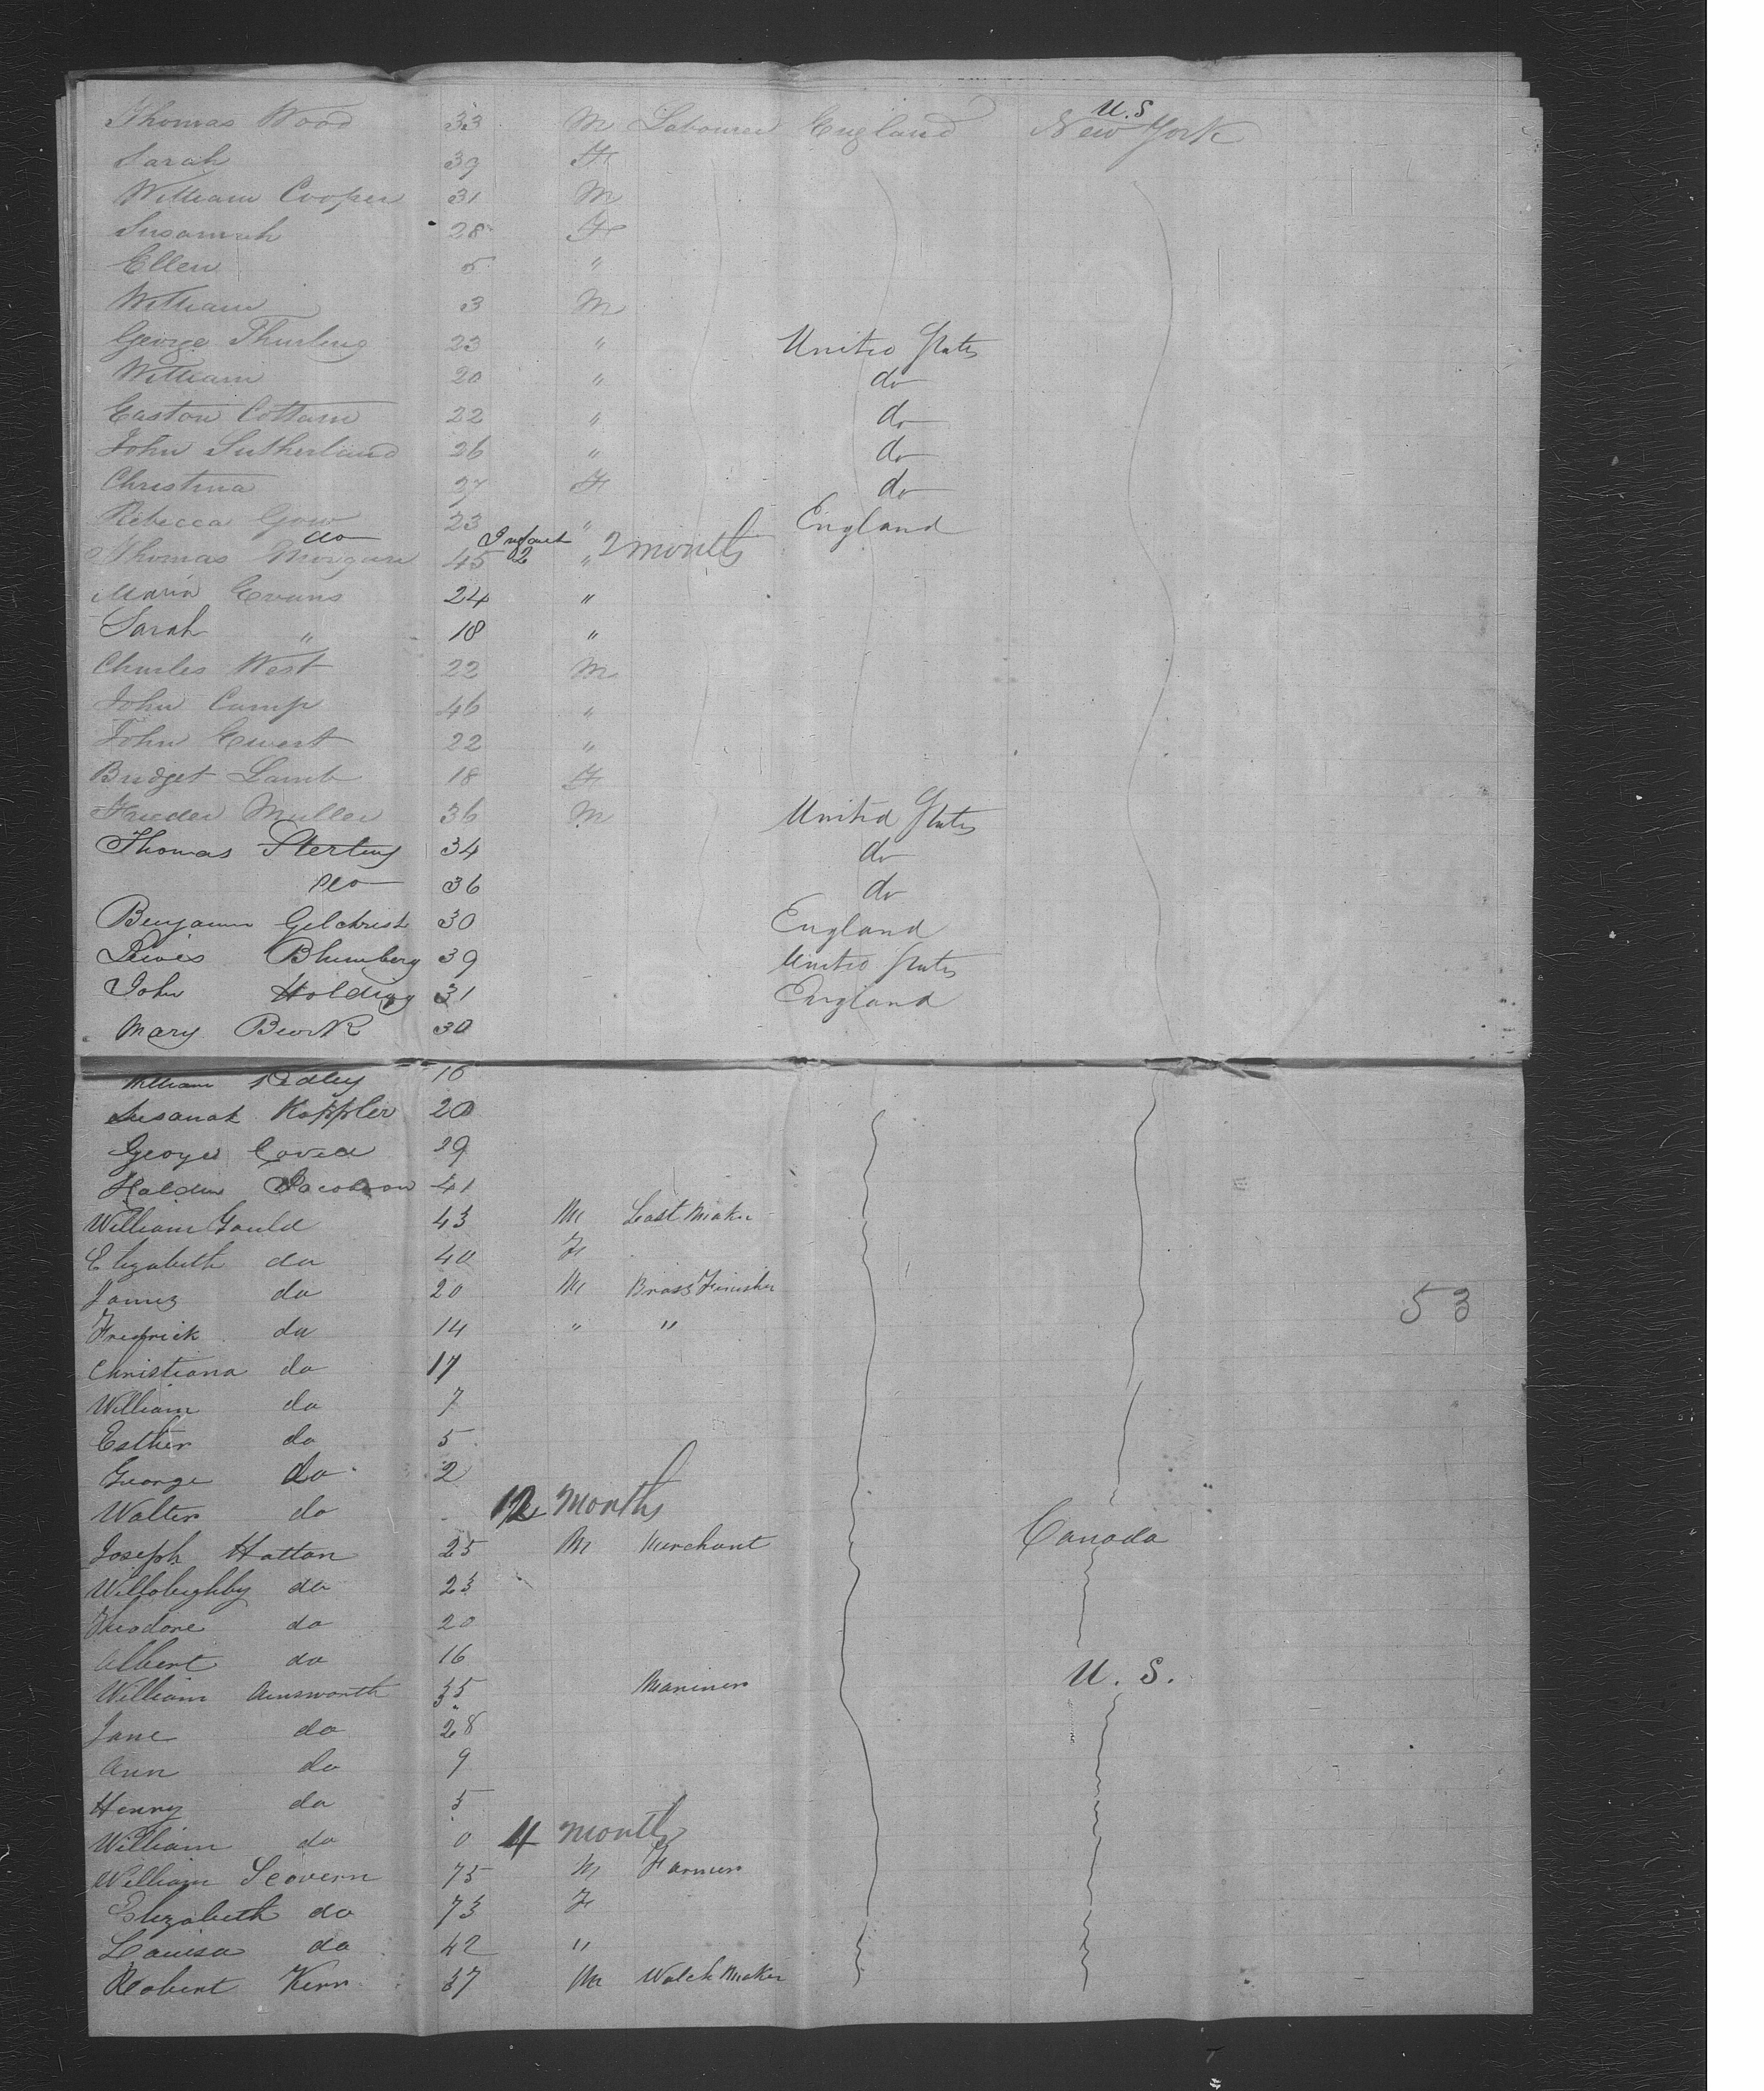 U.S
Thomas Wood 33 M Labourer England New York
Sarah 39 F
William Cooper 31 M
Susannah 28 F
Ellen 5 "
William 3 M
George Thurling 23 " United States
William 20 " do
Easton Cottam 22 " do
John Sutherland 26 " do
Christina 27 F do
Rebecca Gow 23 " England
do Infant
Thomas Morgan 45 2 " 2 months
Maria Evans 24 "
Sarah " 18 "
Charles West 22 M
John Camp 46 "
John Ewert 22 "
Bridget Lamb 18 F
Muller 36 M United States
Thomas Sterling 34 do
do 36 do
Benjamin Gilchrist 30 England
Lewis Blumberg 39 United States
John Holding 31 England
Mary 30
William 16
Susanah Koppler 20
George 29
Jacobson 41
William Gould 43 M Last Maker
Elizabeth do 40 F
James do 20 M Brass Finisher
Fredrick do 14 " "
Christiana do 17
William do 7
Esther do 5
George do 2
Walter do 12 months
Joseph Hatton 25 M Merchant Canada
Willoughby do 23
Theodore do 20
Albert do 16
William Ainsworth 35 Mariner U.S.
Jane do 28
Ann do 9
Henry do 5
William do 0 4 months
William Scovern 75 M Farmer
Elizabeth do 73 F
Louisa do 42 "
Robert Kerr 37 M Watch Maker
53